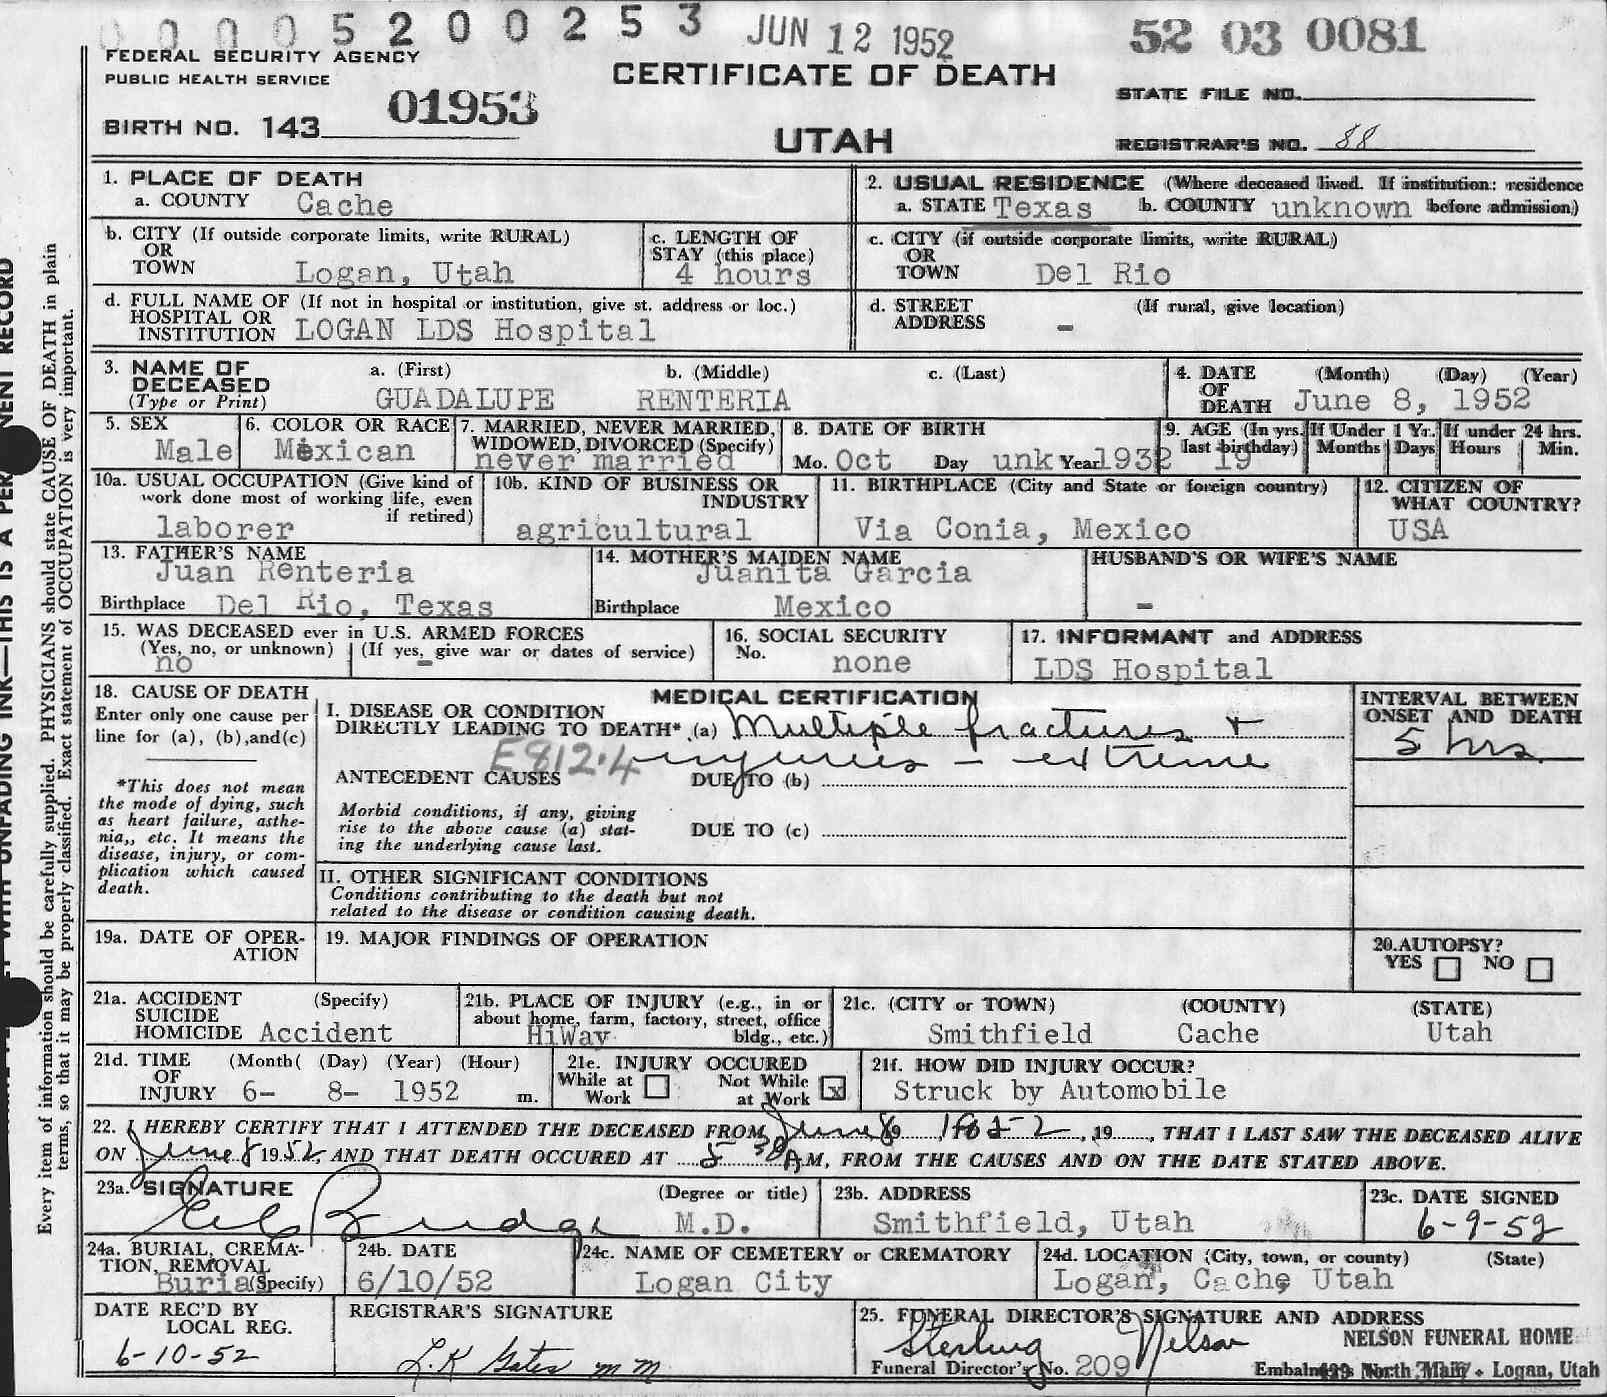 0 0 0 0 5 2 0 0 2 5 3 JUN 12 1952 52 03 0081
FEDERAL SECURITY AGENCY
PUBLIC HEALTH SERVICE
CERTIFICATE OF DEATH
STATE FILE NO.
BIRTH NO. 143 01953
UTAH
REGISTRAR'S NO. 88
1. PLACE OF DEATH
a. COUNTY Cache
2. USUAL RESIDENCE (Where deceased lived. If institution: residence
a. STATE Texas b. COUNTY unknown before admission)
b. CITY (If outside corporate limits, write RURAL)
OR
TOWN Logan, Utah
c. LENGTH OF
STAY (this place)
4 hours
c. CITY (if outside corporate limits, write RURAL)
OR
TOWN Del Rio
d. FULL NAME OF (If not in hospital or institution, give st. address or loc.)
HOSPITAL OR
INSTITUTION LOGAN LDS Hospital
d. STREET (If rural, give location)
ADDRESS -
3. NAME OF a. (First) b. (Middle) c. (Last)
DECEASED
(Type or Print) GUADALUPE RENTERIA
4. DATE (Month) (Day) (Year)
OF
DEATH June 8, 1952
5. SEX
Male
6. COLOR OR RACE
Mexican
7. MARRIED, NEVER MARRIED,
WIDOWED, DIVORCED (Specify)
never married
8. DATE OF BIRTH
Mo. Oct Day unk Year 1932
9. AGE (In yrs. If Under 1 Yr. If under 24 hrs.
last birthday) Months Days Hours Min.
19
10a. USUAL OCCUPATION (Give kind of
work done most of working life, even
if retired)
laborer
10b. KIND OF BUSINESS OR
INDUSTRY
agricultural
11. BIRTHPLACE (City and State or foreign country)
Via Conia, Mexico
12. CITIZEN OF
WHAT COUNTRY?
USA
13. FATHER'S NAME
Juan Renteria
Birthplace Del Rio, Texas
14. MOTHER'S MAIDEN NAME
Juanita Garcia
Birthplace Mexico
HUSBAND'S OR WIFE'S NAME
-
15. WAS DECEASED ever in U.S. ARMED FORCES
(Yes, no, or unknown) (If yes, give war or dates of service)
no -
16. SOCIAL SECURITY
No. none
17. INFORMANT and ADDRESS
LDS Hospital
18. CAUSE OF DEATH
Enter only one cause per
line for (a), (b),and(c)
*This does not mean
the mode of dying, such
as heart failure, asthe-
nia,, etc. It means the
disease, injury, or com-
plication which caused
death.
MEDICAL CERTIFICATION
I. DISEASE OR CONDITION
DIRECTLY LEADING TO DEATH* (a) Multiple fractures +
E812.4 injuries - extreme
ANTECEDENT CAUSES DUE TO (b)
Morbid conditions, if any, giving
rise to the above cause (a) stat-
ing the underlying cause last.
DUE TO (c)
INTERVAL BETWEEN
ONSET AND DEATH
5 hrs
II. OTHER SIGNIFICANT CONDITIONS
Conditions contributing to the death but not
related to the disease or condition causing death.
19a. DATE OF OPER-
ATION
19. MAJOR FINDINGS OF OPERATION
20. AUTOPSY?
YES NO
21a. ACCIDENT (Specify)
SUICIDE
HOMICIDE Accident
21b. PLACE OF INJURY (e.g., in or
about home, farm, factory, street, office
bldg., etc.)
HiWay
21c. (CITY or TOWN) (COUNTY) (STATE)
Smithfield Cache Utah
21d. TIME (Month( (Day) (Year) (Hour)
OF
INJURY 6- 8- 1952 m.
21e. INJURY OCCURED
While at Work Not While at Work x
21f. HOW DID INJURY OCCUR?
Struck by Automobile
22. I HEREBY CERTIFY THAT I ATTENDED THE DECEASED FROM June 8 19 1952, 19, THAT I LAST SAW THE DECEASED ALIVE
ON June 8 1952, AND THAT DEATH OCCURED AT 5 30 A M, FROM THE CAUSES AND ON THE DATE STATED ABOVE.
23a. SIGNATURE (Degree or title)
Budge M.D.
23b. ADDRESS
Smithfield, Utah
23c. DATE SIGNED
6-9-52
24a. BURIAL, CREMA-
TION, REMOVAL
Burial (Specify)
24b. DATE
6/10/52
24c. NAME OF CEMETERY or CREMATORY
Logan City
24d. LOCATION (City, town, or county) (State)
Logan, Cache Utah
DATE REC'D BY
LOCAL REG.
6-10-52
REGISTRAR'S SIGNATURE
25. FUNERAL DIRECTOR'S SIGNATURE AND ADDRESS
Sterling Nelson NELSON FUNERAL HOME
Funeral Director's No. 209 Embalmer's North Main • Logan, Utah
Every item of information should be carefully supplied. PHYSICIANS should state CAUSE OF DEATH in plain
terms, so that it may be properly classified. Exact statement of OCCUPATION is very important.
WITH UNFADING INK—THIS IS A PERMANENT RECORD